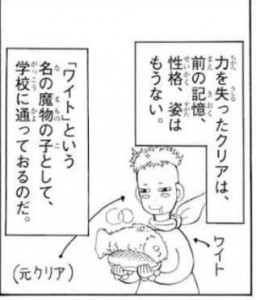 力を失ったクリアは、
前の記憶、
性格、姿は
もうない。
「ワイト」という
名の魔物の子として、
学校に通っておるのだ。
ワイト
(元クリア)